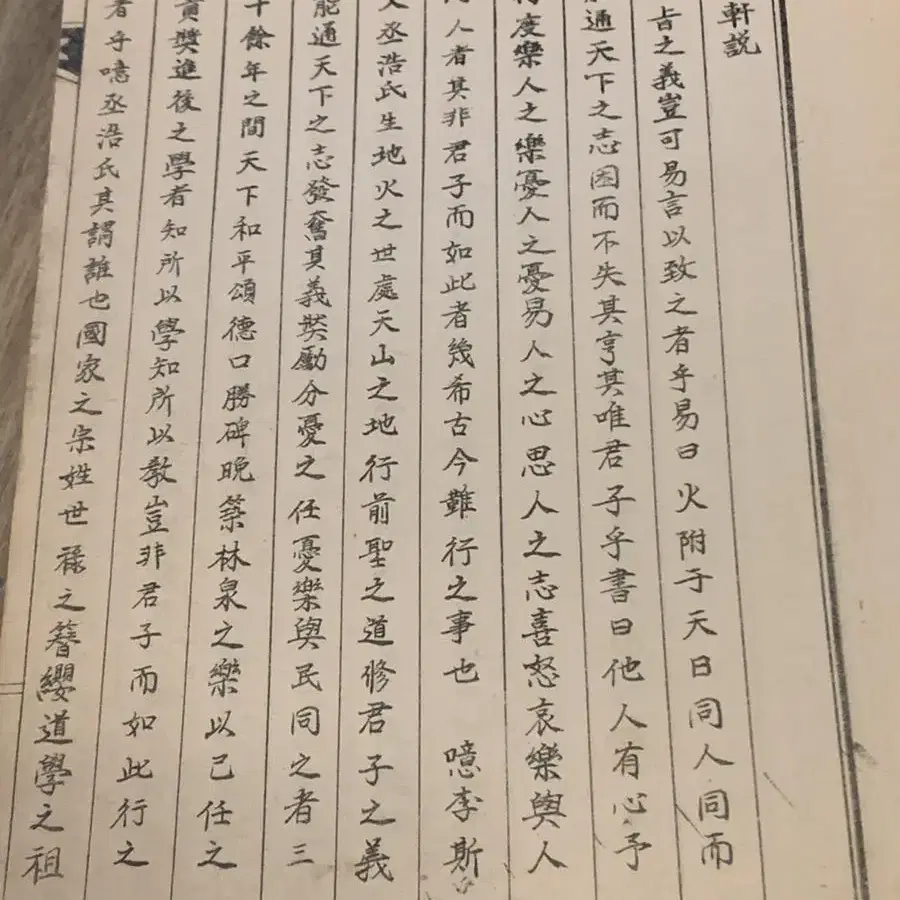 軒説
旨之義豈可易言以致之者乎易曰火附于天曰同人同而
通天下之志困而不失其亨其唯君子乎書曰他人有心予
度樂人之樂憂人之憂易人之心思人之志喜怒哀樂與人
人者其非君子而如此者幾希古今難行之事也 噫李斯
丞浩氏生地火之世處天山之地行前聖之道修君子之義
能通天下之志發奮其義奬勵分憂之任憂樂與民同之者三
十餘年之間天下和平頌德口勝碑晩築林泉之樂以己任之
責奬進後之學者知所以學知所以教豈非君子而如此行之
者乎噫丞浩氏其謂誰也國家之宗姓世祿之簪纓道學之祖